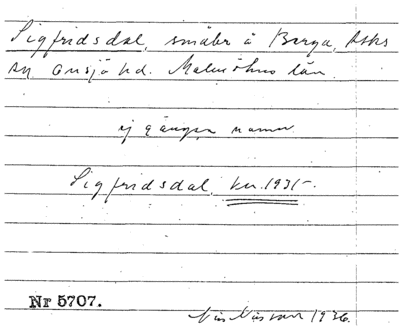 Sigfridsdal, småbr å Berga, Asks
sn Onsjö hd. Malmöhus län.
ej gängse namn
Sigfridsdal, kn. 1931-
Nr 5707.
Nils Nilsson 1936.